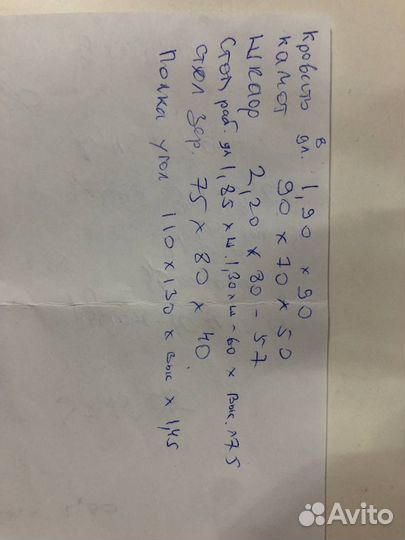 Кровать в дл. 1,90 x 90
камот 90 x 70 x 50
Шкаф 2,20 x 80 - 57
Стол раб. дл 1,85 x ш. 1,30 x ш - 60 x выс. 75
Стол зер. 75 x 80 x 40
Полка угол 110 x 130 x выс x 1,45
Avito